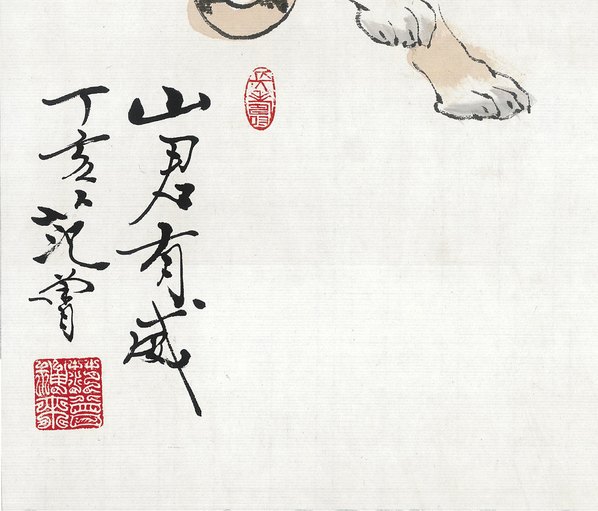 山君有威
丁亥 范曾